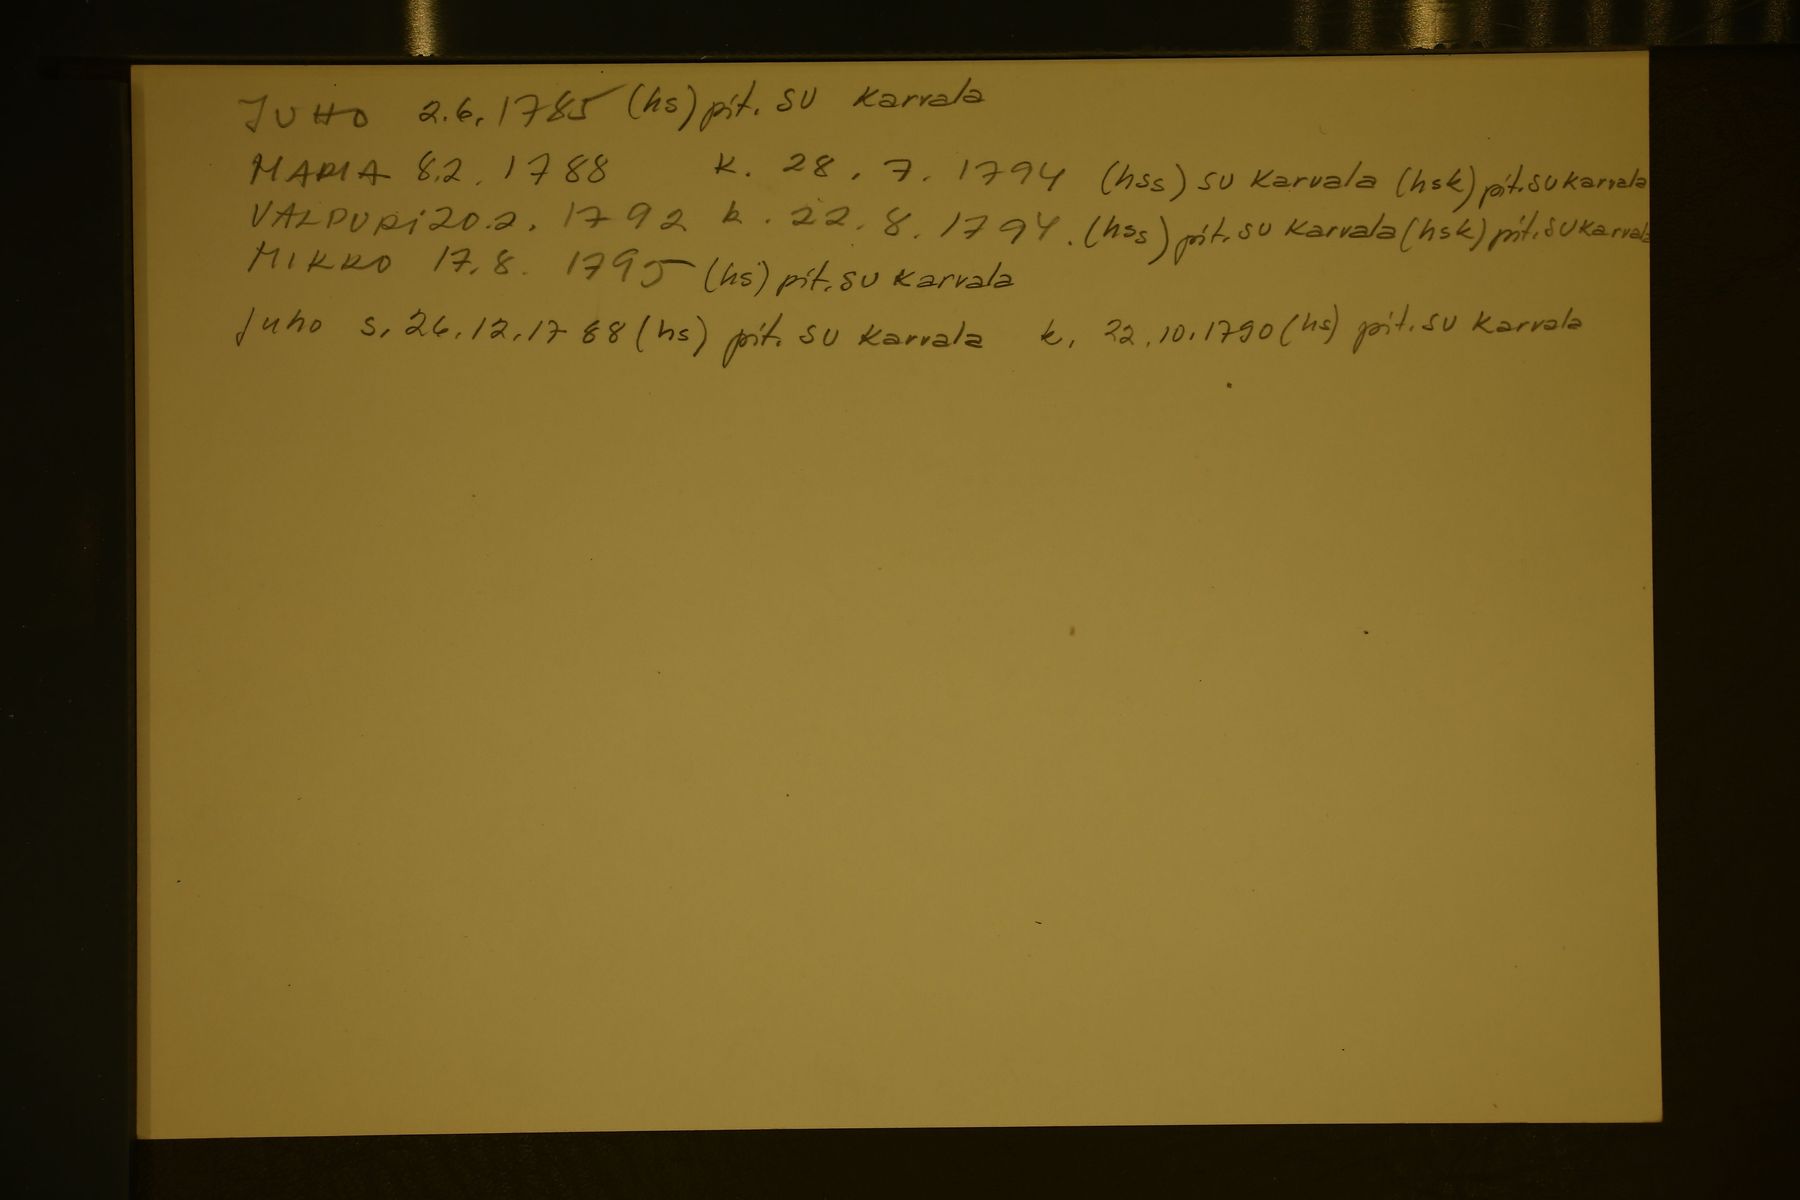 JUHO 2.6.1785 (hs) pit. SU Karvala
MARIA 8.2.1788 k. 28.7.1794 (hss) SU Karvala (hsk) pit. SU Karvala
VALPURI 20.2.1792 k. 22.8.1794. (hss) pit. SU Karvala (hsk) pit. SU Karvala
MIKKO 17.8.1795 (hs) pit. SU Karvala
Juho s. 26.12.1788 (hs) pit. SU Karvala k. 22.10.1790 (hs) pit. SU Karvala